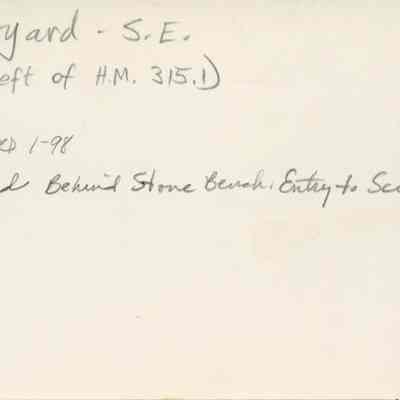 yard - S.E.
eft of H.M. 315.1)
ED 1-98
d Behind Stone Bench. Entry to Sec